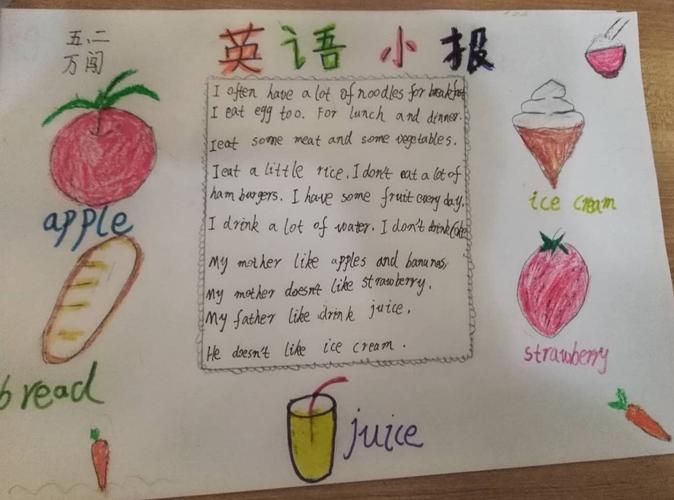 五.二
万闯
英语小报
I often have a lot of noodles for breakfast
I eat egg too. For lunch and dinner.
I eat some meat and some vegetables.
I eat a little rice. I don't eat a lot of
hamburgers. I have some fruit every day.
I drink a lot of water. I don't drink Coke
My mother like apples and bananas,
My mother doesn't like strawberry.
My father like drink juice.
He doesn't like ice cream.
apple
bread
ice cream
strawberry
juice